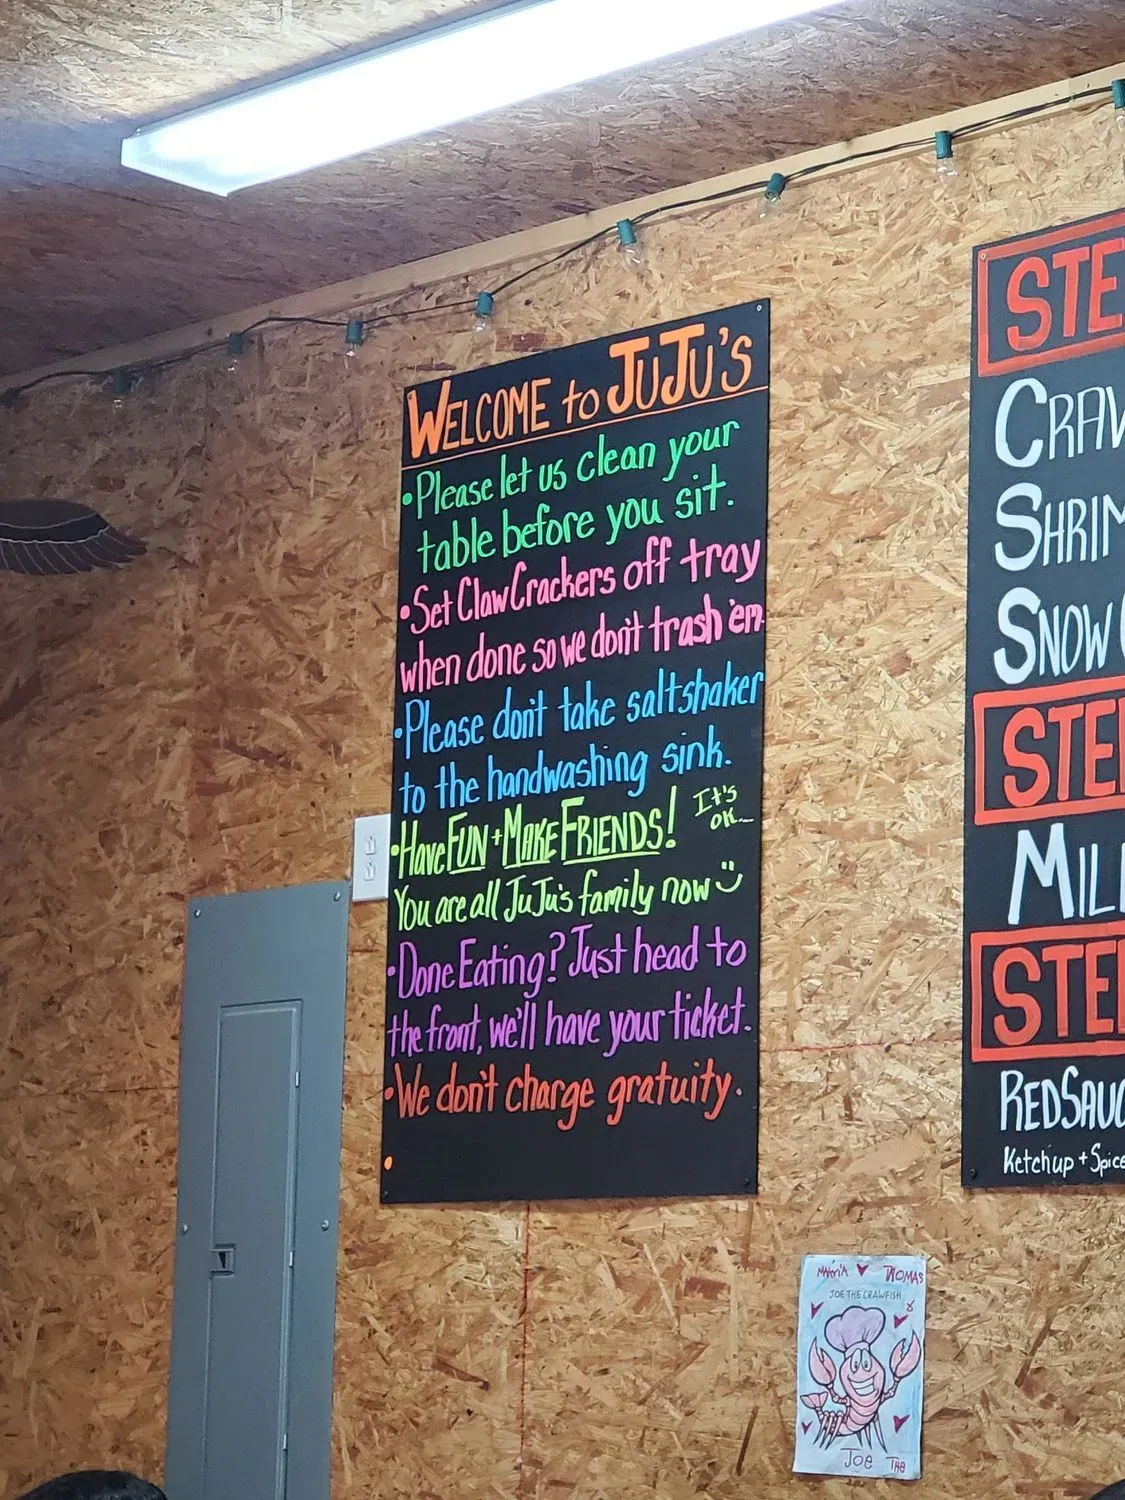 WELCOME to JUJU'S
•Please let us clean your
table before you sit.
•Set Claw Crackers off tray
when done so we don't trash 'em
•Please don't take saltshaker
to the handwashing sink.
•Have FUN + MAKE FRIENDS! It's
ok...
You are all JuJu's family now
•Done Eating? Just head to
the front, we'll have your ticket.
•We don't charge gratuity.
STE
CRAW
SHRIM
SNOW
STE
MIL
STE
REDSAUC
Ketchup + Spice
THOMAS
JOE THE CRAWFISH
Joe The